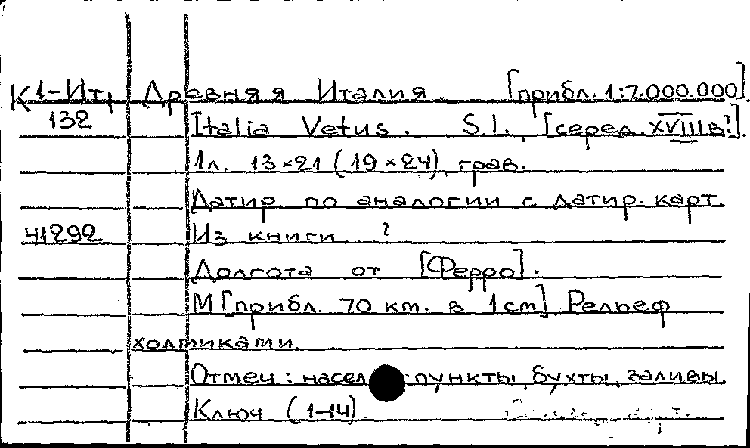 К 1-Ит Древняя Италия [прибл. 1:7.000.000].
132 Italia Vetus. S.l., [серед. XVIII в.].
1 л. 13×21 (19×24), грав.
Датир. по аналогии с датир. карт.
41292 Из книги ?
Долгота от [Ферро].
М [прибл. 70 км. в 1 см] Рельеф
холмиками.
Отмеч: насел пункты, бухты, заливы.
Ключ (1-14)